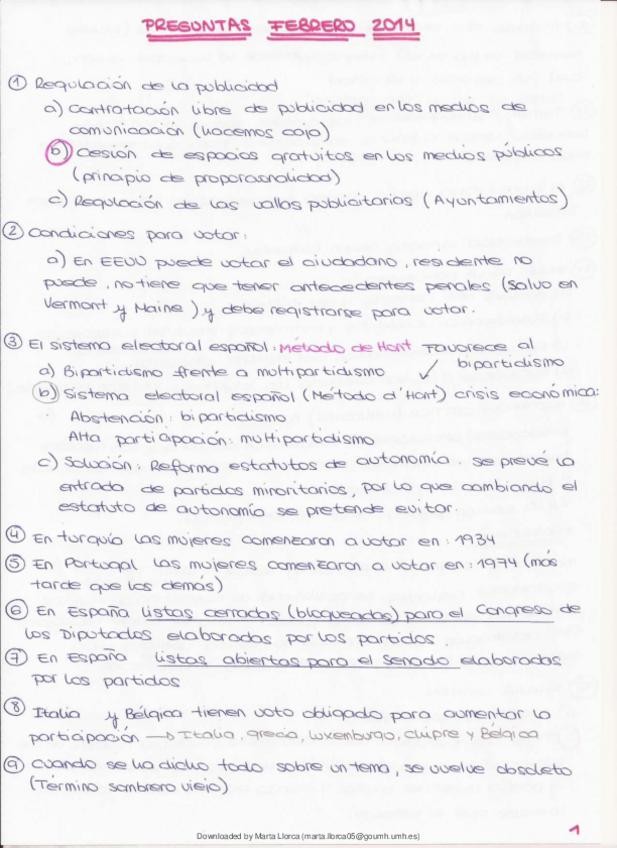 PREGUNTAS FEBRERO 2014
① Regulación de la publicidad
a) Contratación libre de publicidad en los medios de
comunicación (hacemos caja)
b) Cesión de espacios gratuitos en los medios públicos
(principio de proporcionalidad)
c) Regulación de las vallas publicitarias (Ayuntamientos)
② Condiciones para votar:
a) En EEUU puede votar el ciudadano, residente no
puede, no tiene que tener antecedentes penales (salvo en
Vermont y Maine) y debe registrarse para votar.
③ El sistema electoral español: Método de Hont Favorece al
a) Bipartidismo frente a multipartidismo ✓ bipartidismo
b) Sistema electoral español (Método d'Hont) crisis económica:
Abstención: bipartidismo
Alta participación: multipartidismo
c) Solución: Reforma estatutos de autonomía. se prevé la
entrada de partidos minoritarios, por lo que cambiando el
estatuto de autonomía se pretende evitar.
④ En turquía las mujeres comenzaron a votar en: 1934
⑤ En Portugal las mujeres comenzaron a votar en: 1974 (más
tarde que los demás)
⑥ En España listas cerradas (bloqueadas) para el Congreso de
los Diputados elaboradas por los partidos.
⑦ En España listas abiertas para el Senado elaboradas
por los partidos
⑧ Italia y Bélgica tienen voto obligado para aumentar la
participación → Italia, grecia, luxemburgo, chipre y Bélgica
⑨ Cuando se ha dicho todo sobre un tema, se vuelve obsoleto
(Término sombrero viejo)
1
Downloaded by Marta Llorca (marta.llorca05@goumh.umh.es)